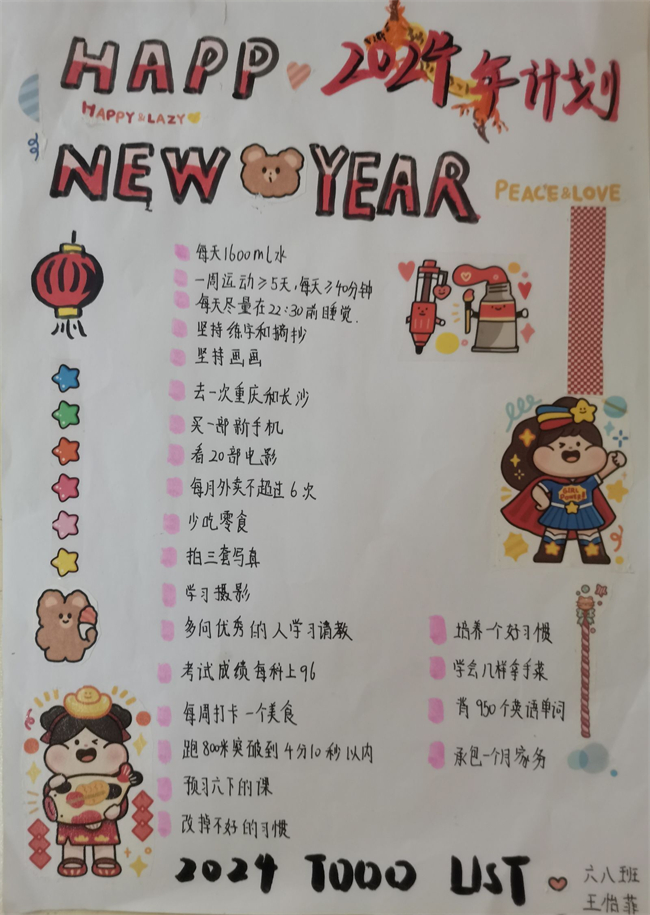 HAPP
2024年计划
HAPPY&LAZY
NEW YEAR
PEACE&LOVE
每天1600ml水
一周运动≥5天，每天≥40分钟
每天尽量在22:30前睡觉.
坚持练字和摘抄
坚持画画
去一次重庆和长沙
买一部新手机
看20部电影
每月外卖不超过6次
少吃零食
拍三套写真
学习摄影
多向优秀的人学习请教
考试成绩每科上96
每周打卡一个美食
跑800米突破到4分10秒以内
预习六下的课
改掉不好的习惯
培养一个好习惯
学会几样拿手菜
背950个英语单词
承包一个月家务
2024 TODO LIST
六八班
王怡菲